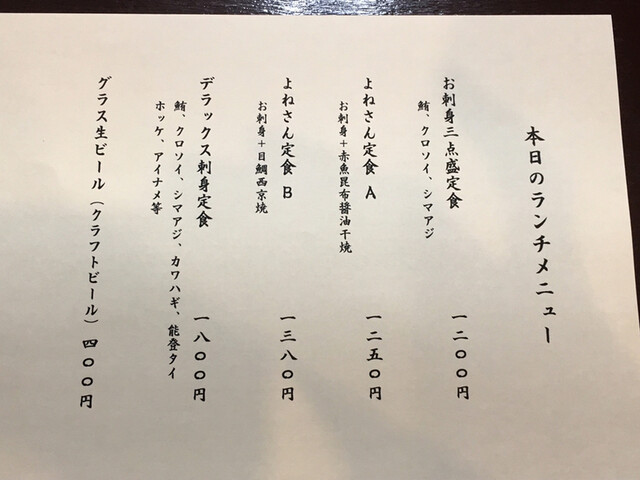 本日のランチメニュー
お刺身三点盛定食 一二〇〇円
鮪、クロソイ、シマアジ
よねさん定食 A 一二五〇円
お刺身＋赤魚昆布醤油干焼
よねさん定食 B 一三八〇円
お刺身＋目鯛西京焼
デラックス刺身定食 一八〇〇円
鮪、クロソイ、シマアジ、カワハギ、能登タイ
ホッケ、アイナメ等
グラス生ビール（クラフトビール）四〇〇円